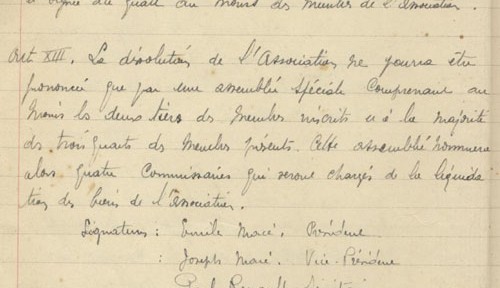 signée du quart au moins des membres de l'Association.
Art XIII. La dissolution de l'Association ne pourra être
prononcé que par une assemblée spéciale comprenant au
moins les deux tiers des Membres inscrits et à la majorité
des trois quarts des Membres présents. Cette assemblée nommera
alors quatre Commissaires qui seront chargés de la liquida
tion des biens de l'Association.
Signatures : Emile Macé. Président
: Joseph Macé. Vice-Président